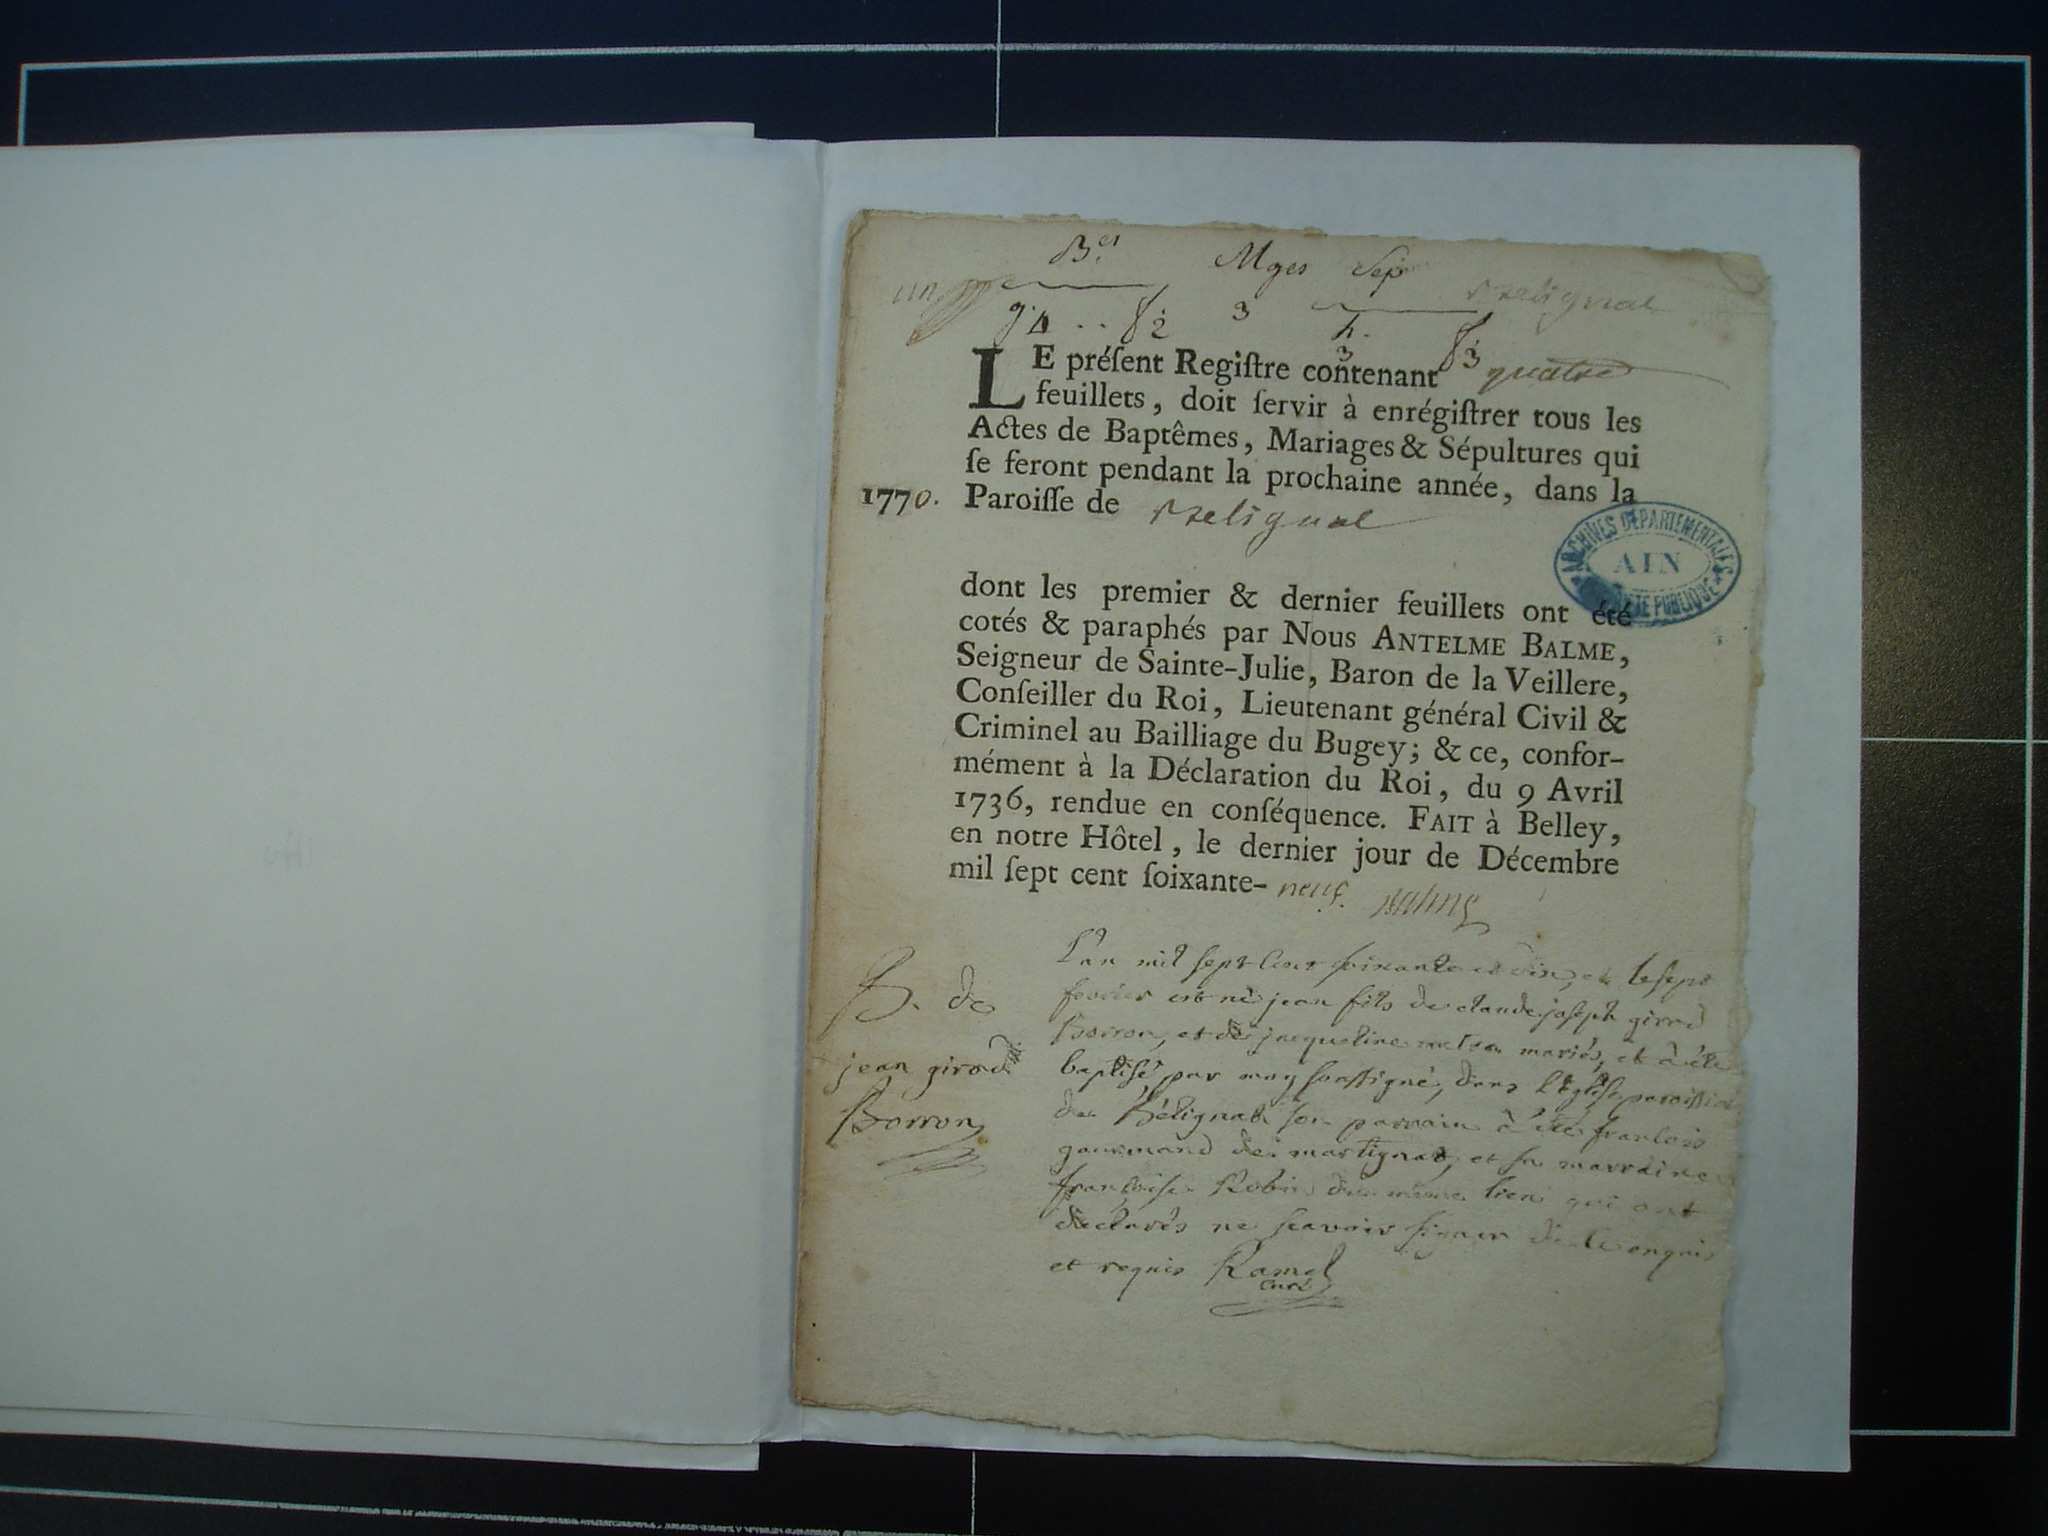 B.es Mges Sep
un Belignat
g. 4 .. f. 2 3 h. 3 f. 3
LE préſent Regiſtre contenant quatre
feuillets, doit ſervir à enrégiſtrer tous les
Actes de Baptêmes, Mariages & Sépultures qui
ſe feront pendant la prochaine année, dans la
1770. Paroiſſe de Belignat
ARCHIVES DÉPARTEMENTALES
AIN
PUBLIQUE
dont les premier & dernier feuillets ont été
cotés & paraphés par Nous ANTELME BALME,
Seigneur de Sainte-Julie, Baron de la Veillere,
Conſeiller du Roi, Lieutenant général Civil &
Criminel au Bailliage du Bugey; & ce, confor-
mément à la Déclaration du Roi, du 9 Avril
1736, rendue en conſéquence. FAIT à Belley,
en notre Hôtel, le dernier jour de Décembre
mil ſept cent ſoixante-neuf. Balme
B. de
jean girod
Borron
L'an mil sept cent soixante et dix, et le sept
fevrier est né jean fils de claude joseph girod
Borron, et de jacqueline mariés, et à été
baptisé par moy soussigné, dans l'Eglise paroissial
de Bélignat son parrain à été francois
gourmand de martignat, et sa marraine
francoise Robin du même lieu qui ont
declarés ne scavoir signer de ce enquis
et requis Ramel
curé